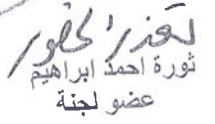 تعذر الحضور
ثورة احمد ابراهيم
عضو لجنة